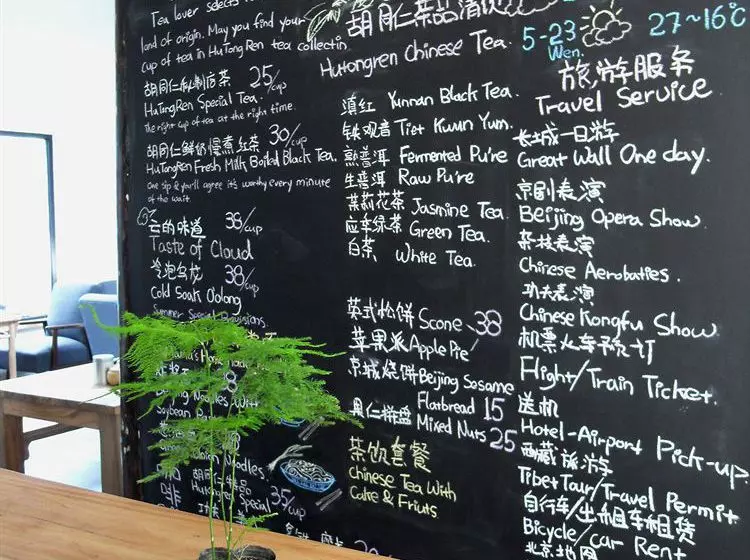 Tea lover selects
land of origin. May you find your
cup of tea in HuTong Ren tea collectin.
胡同仁私制店茶 25/cup
HuTongRen Special Tea.
The right cup of tea at the right time.
胡同仁鲜奶慢煮红茶 30/cup
HuTongRen Fresh Milk Boiled Black Tea.
One sip & you'll agree it's worthy every minute
of the wait.
云的味道 38/cup
Taste of Cloud
冷泡乌龙 38/cup
Cold Soak Oolong
Summer Special
Noodles With
Soybean
Onion Noodles.
胡同仁特品
HuTongRen Special
35/cup
胡同仁茶品清
Hutongren Chinese Tea.
滇红 Yunnan Black Tea.
铁观音 Tiet Kwun Yum.
熟普洱 Fermented Pu're
生普洱 Raw Pu're
茉莉花茶 Jasmine Tea.
应季绿茶 Green Tea.
白茶 White Tea.
英式松饼 Scone 38
苹果派 Apple Pie
京城烧饼 Beijing Sosame
Flatbread 15
同仁拼盘 Mixed Nuts 25
茶饮套餐
Chinese Tea With
Cake & Friuts
5-23 27~16℃
Wen.
旅游服务
Travel Service
长城一日游
Great Wall One day.
京剧表演
Beijing Opera Show.
杂技表演
Chinese Aerobaties.
功夫表演
Chinese Kongfu Show
机票火车预订
Flight/Train Ticket.
送机
Hotel-Airport Pick-up
西藏旅游
Tibet Tour/Travel Permit
自行车/出租车租赁
Bicycle/car Rent
北京地图